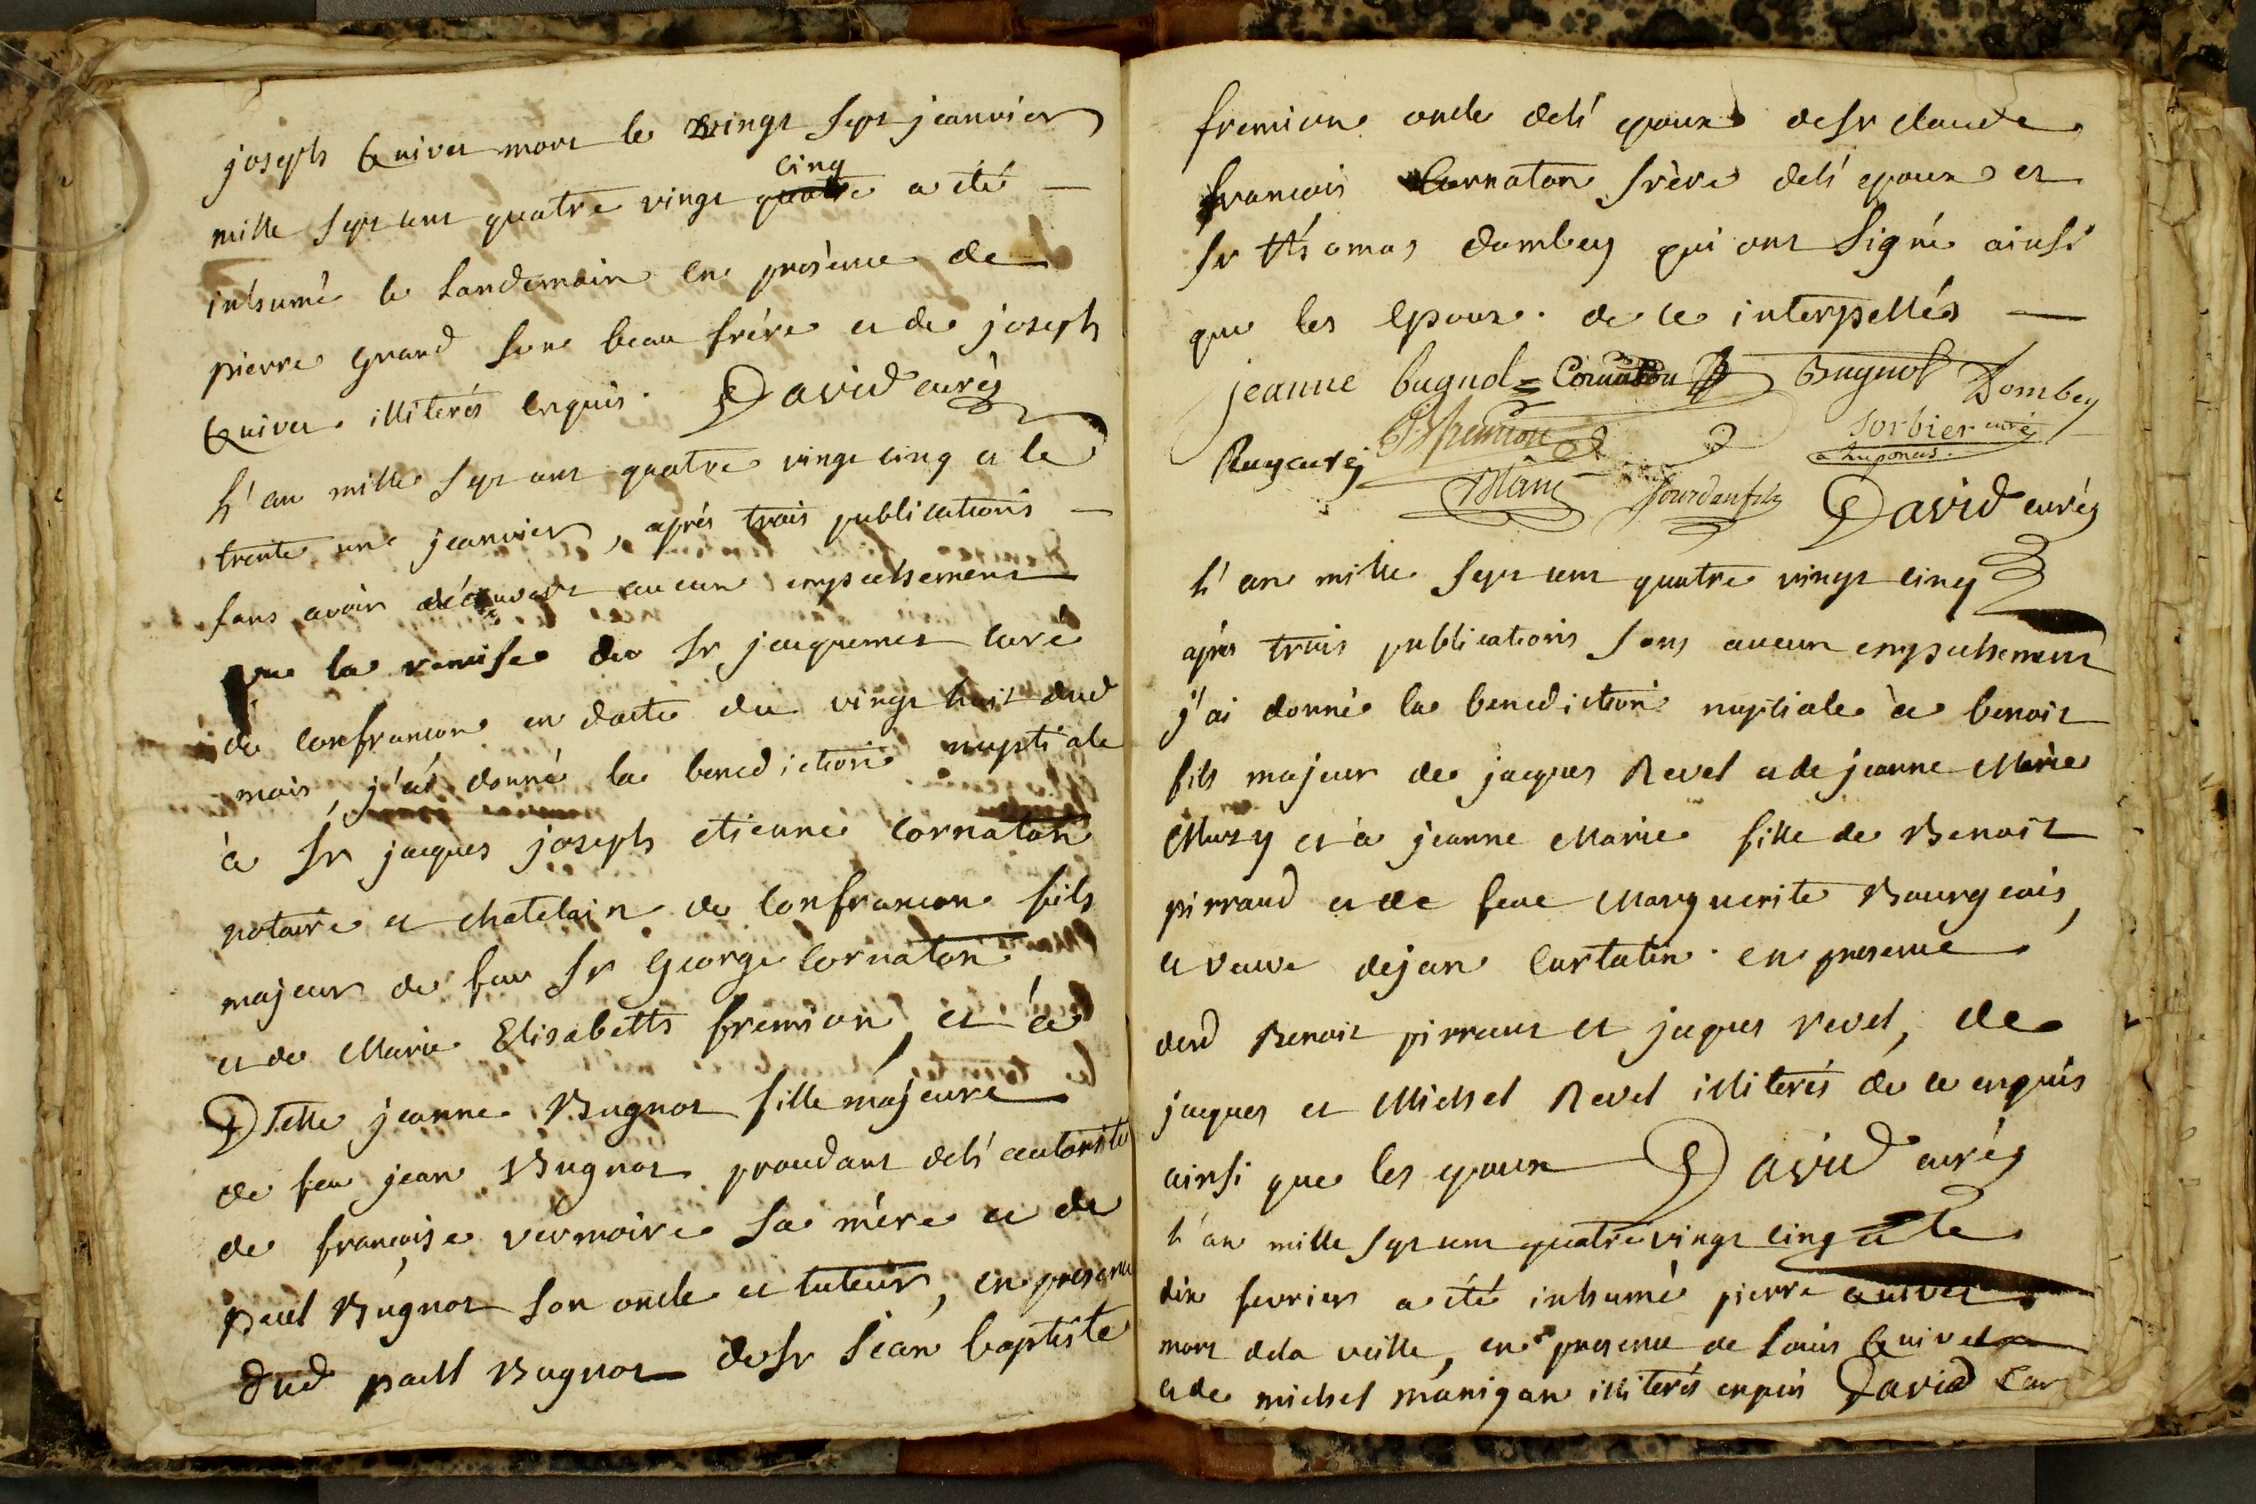 joseph Quivet mort le vingt sept jeanvier
mille sept cent quatre vingt quatre cinq a été —
inhumé le landemain en présence de
pierre grand son beau frére et de joseph
Quivet illiterés enquis. David curéz
L'an mille sept cent quatre vingt cinq et le
trente un jeanvier, aprés trois publications —
sans avoir découvert aucun empechement
que la remise du Sr jacquemet curé
de confrancon en datte du vingt huit dud
mois, j'ai donné la benediction nuptiale
à Sr jacques joseph etienne Cornaton
notaire et chatelain de Confrancon fils
majeur de feu Sr George Cornaton
et de Marie Elisabeth fremion, et à
Dlelle jeanne Bugnot fille majeure
de feu jean Bugnot procedant de l'autorité
de francoise vermoire sa mére et de
paul Bugnot son oncle et tuteur, en presence
dud paul Bugnot de Sr Jean baptiste
fremion oncle de l'epoux de Sr claude
francois Cornaton frère de l'epoux et
Sr thomas dombey qui ont signé ainsi
que les Epoux. de ce interpellés —
jeanne bugnot = Cornaton Bugnot Dombey
Ruy curéz JBfremion Sorbier curéz
a huponas.
Blanc Jourdan fils David curéz
L'an mille sept cent quatre vingt cinq
aprés trois publications sans aucun empechement
j'ai donné la benediction nuptiale à benoit
fils majeur de jacques Revel et de jeanne Marie
Muzy et à jeanne Marie fille de Benoit
pirraud et de feue Marguerite Bourgeois,
et veuve de jean Curtatin. en presence
dud Benoit pirraut et jaques revel, de
jacques et Michel Revel illiterés de ce enquis
ainsi que les epoux David curéz
L'an mille sept cent quatre vingt cinq et le
dix fevrier a été inhumé pierre quivet
mort de la veille, en presence de Louis Quivet
et de michel manigan illiterés enquis David Cur